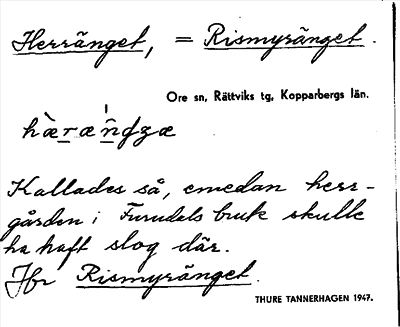 Herränget, = Rismyränget.
Ore sn, Rättviks tg, Kopparbergs län.
Kallades så, emedan herr-
gården i Furudels bruk skulle
ha haft slog där.
Jfr Rismyränget.
THURE TANNERHAGEN 1947.